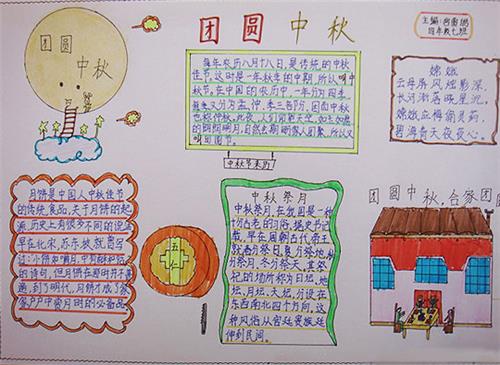 团圆中秋
主编:
四年级七班
团圆
中秋
每年农历八月十八日,是传统的中秋
佳节。这时是一年秋季的中期,所以叫中
秋节。在中国的农历中,一年分为四季,
每季又分为孟、仲、季三部分,因而中秋
也称仲秋。此夜,人们仰望天空,如玉如盘
的朗朗明月,自然会期盼家人团聚,所以又
叫团圆节。
中秋节来历
嫦娥
云母屏风烛影深,
长河渐落晓星沉。
嫦娥应悔偷灵药,
碧海青天夜夜心。
月饼是中国人中秋佳节
的传统食品,关于月饼的起
源,历史上有很多不同的说法
早在北宋,苏东坡就曾写
过:小饼如嚼月,中有酥和饴
的诗句,但月饼在那时并不普
遍,到了明代,月饼才成了家
家户户中秋时的必备品。
五
仁
中秋祭月
中秋祭月,在我国是一种
十分古老的习俗。据史书记
载,早在周朝古代帝王
就有春分祭日、夏分祭地、秋
分祭月、冬分祭天,其祭
祀的场所称为日坛、地
坛、月坛、天坛,分设在
东西南北四个方向。这
种风俗从宫廷贵族延
伸到民间。
团圆中秋,合家团圆